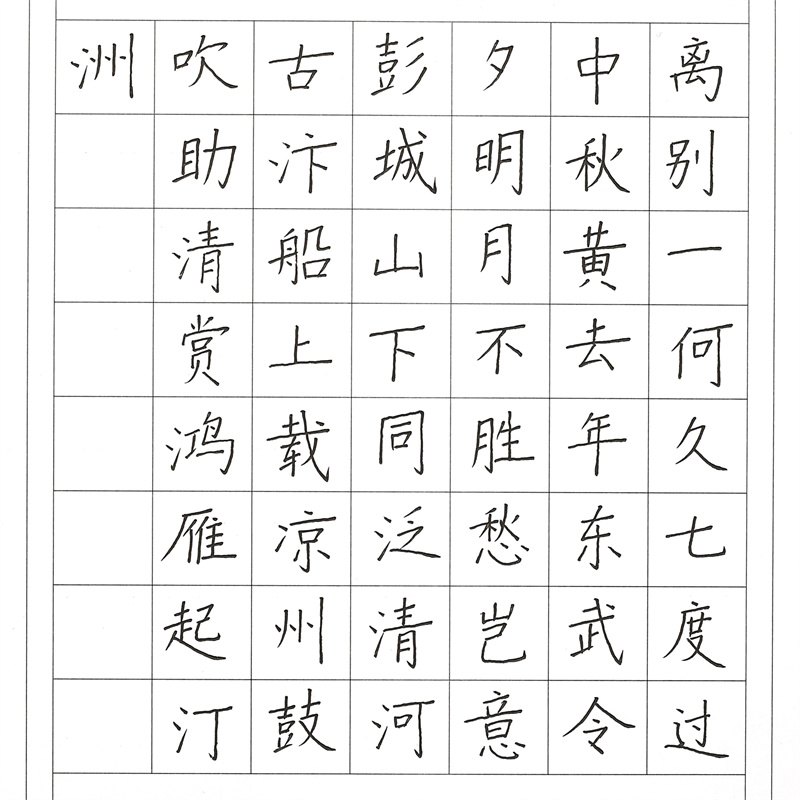 离别一何久七度过
中秋黄去年东武令
夕明月不胜愁岂意
彭城山下同泛清河
古汴船上载凉州鼓
吹助清赏鸿雁起汀
洲